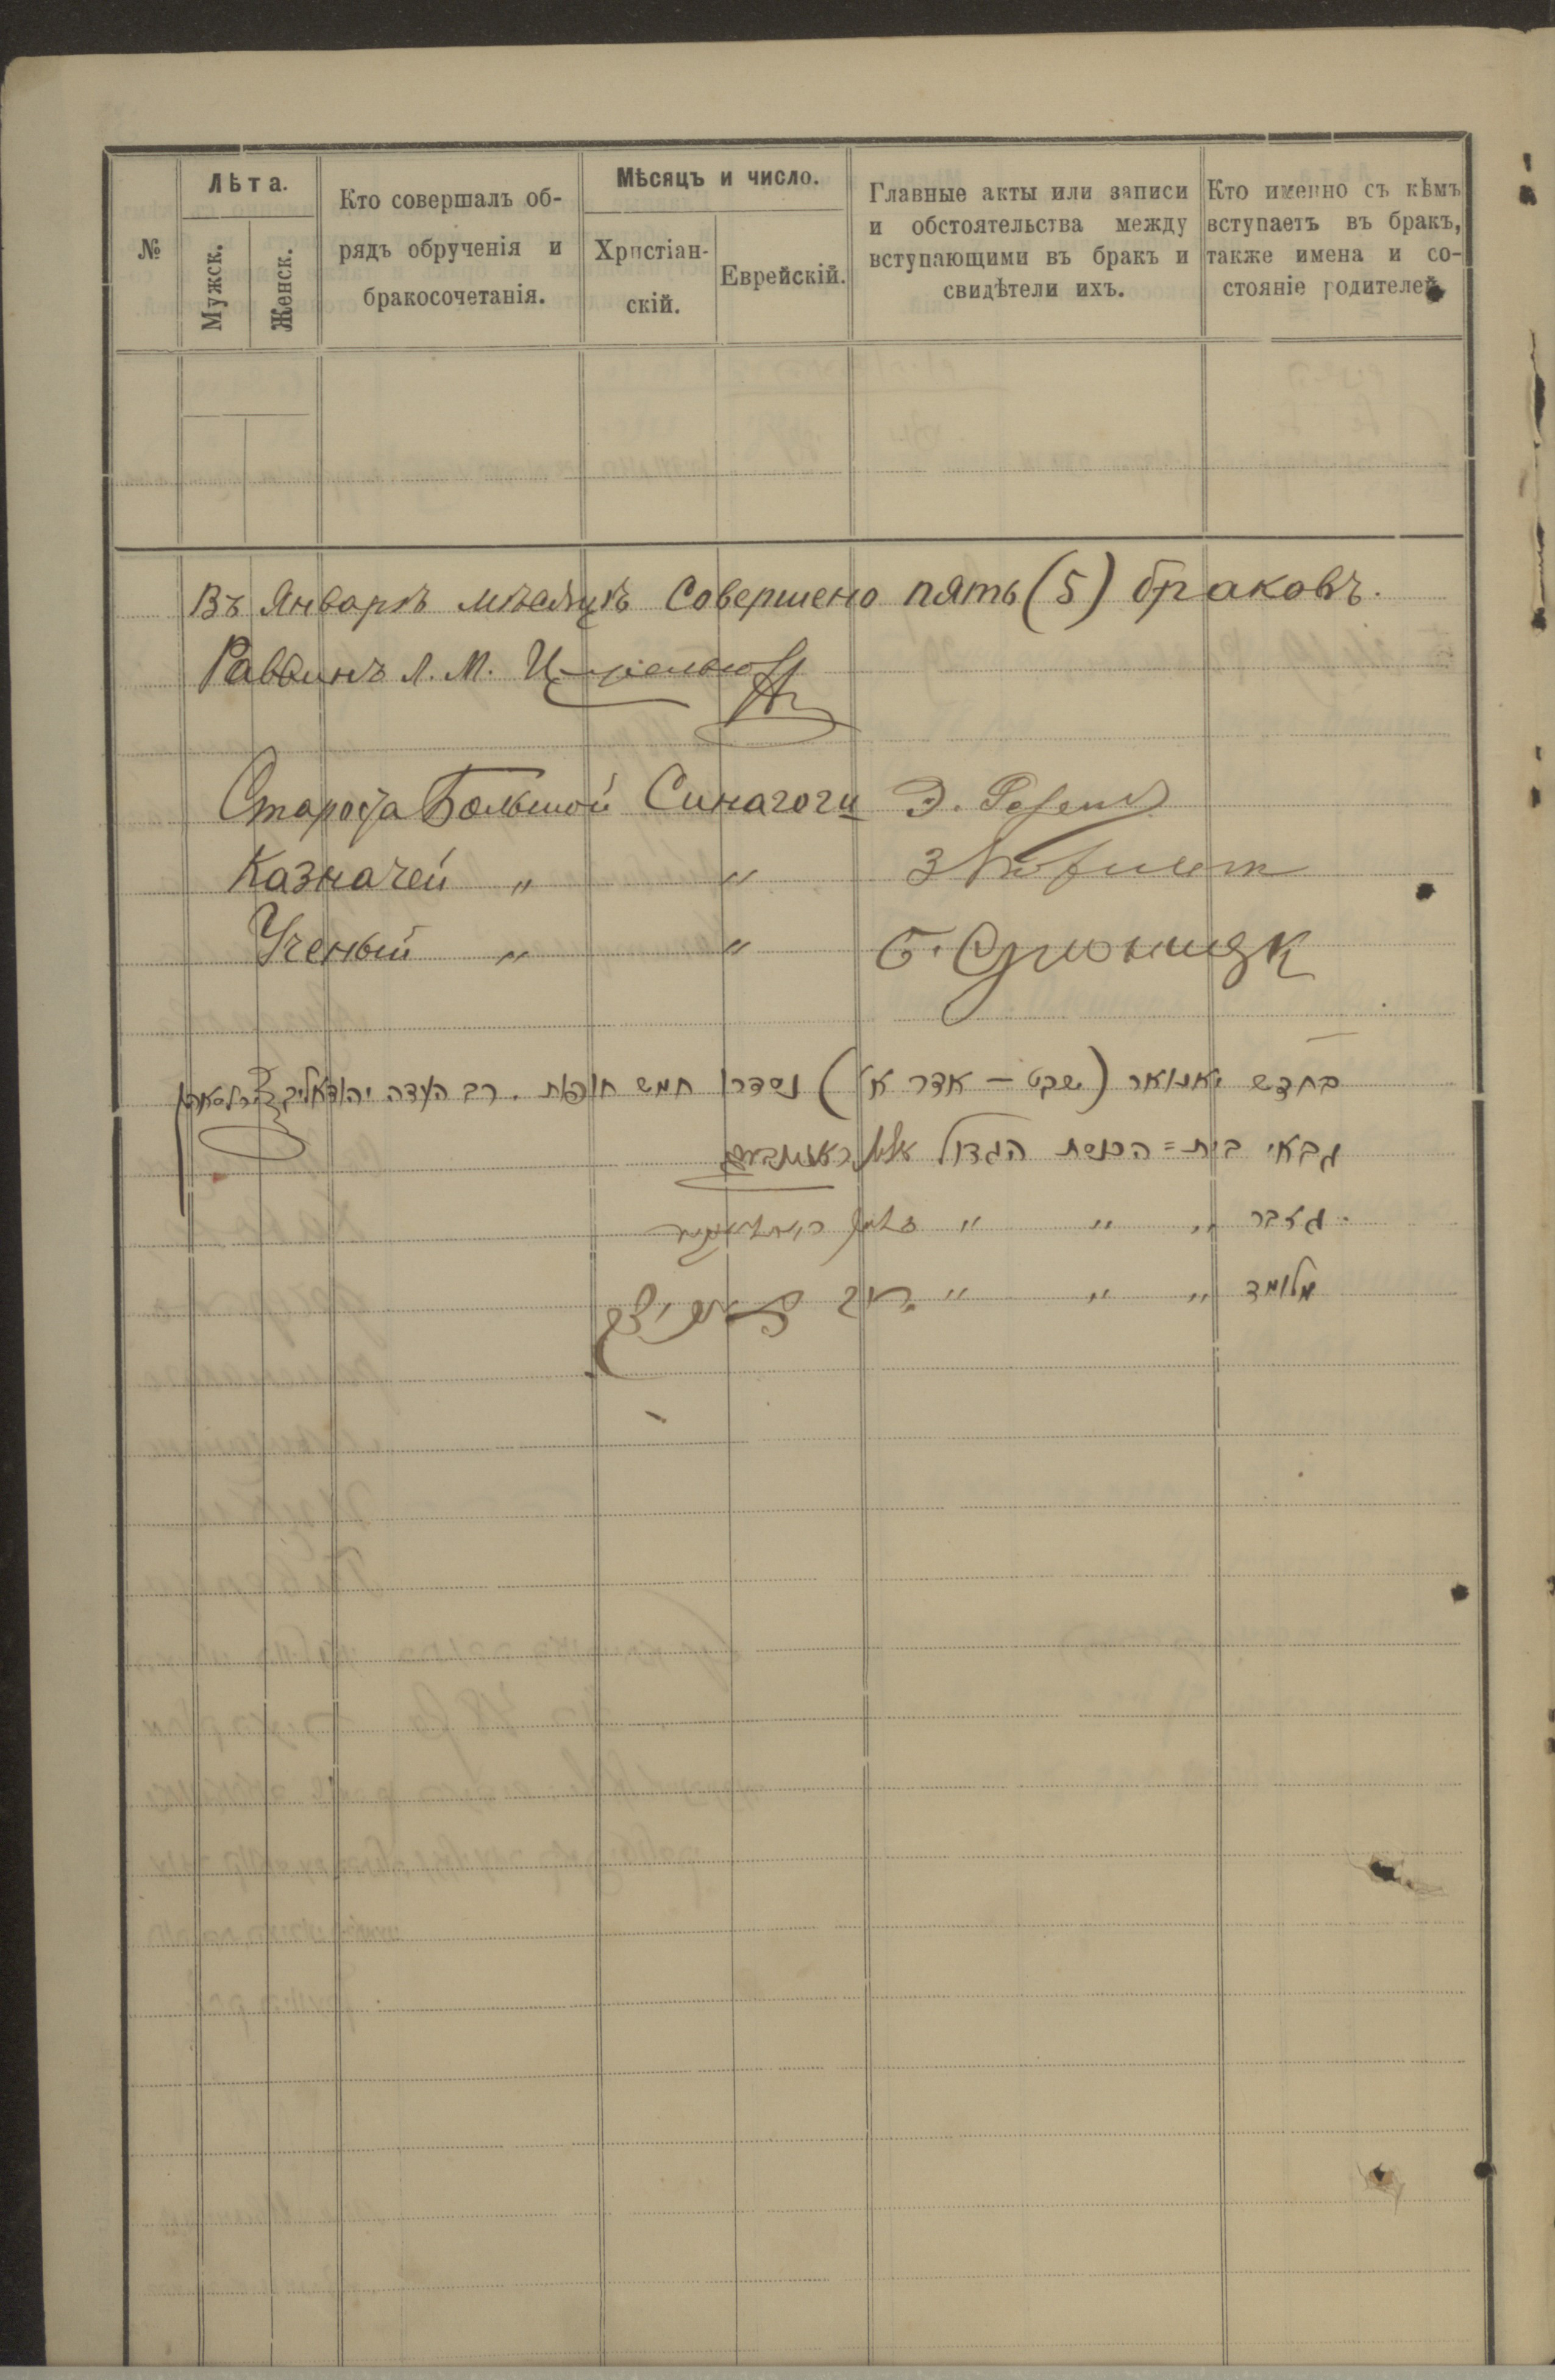 №
Лѣта.
Мужск.
Женск.
Кто совершалъ об-
рядъ обрученія и
бракосочетанія.
Мѣсяцъ и число.
Христіан-
скій.
Еврейскій.
Главные акты или записи
и обстоятельства между
вступающими въ бракъ и
свидѣтели ихъ.
Кто именно съ кѣмъ
вступаетъ въ бракъ,
также имена и со-
стояніе родителей
Въ Январѣ мѣсяцѣ Совершено пять (5) браковъ.
Раввинъ Л. М.
Староста Большой Синагоги Э.
Казначей „ „ З
Ученый „ „
בחדש יאנואר (שבט – אדר א׳) נסדרו חמש חופות. רב העדה יהודא ליב
גבאי בית = הכנסת הגדול
גזבר „ „ „
מלומד „ „ „